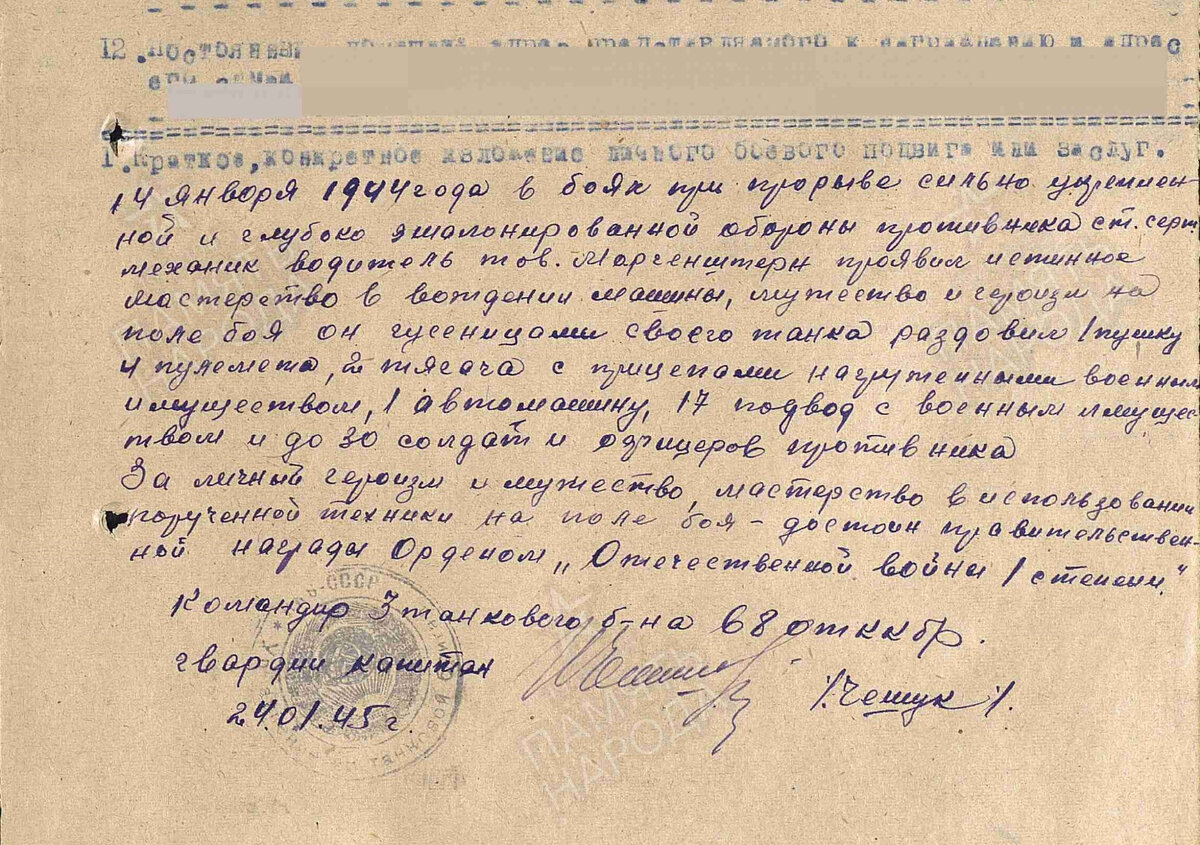 12. Постоянный домашний адрес представляемого к награждению и адрес
его семьи
1. Краткое, конкретное изложение личного боевого подвига или заслуг.
14 января 1944 года в боях при прорыве сильно укреплен-
ной и глубоко эшалонированной обороны противника ст. серж.
механик водитель тов. Моргенштерн проявил истинное
мастерство в вождении машины, мужество и героизм на
поле боя он гусеницами своего танка раздовил 1 пушку
4 пулемета, 2 тягача с прицепами нагруженными военным
имуществом, 1 автомашину, 17 подвод с военным имущес-
твом и до 30 солдат и офицеров противника
За личный героизм и мужество, мастерство в использовании
порученной техники на поле боя - достоин правительствен-
ной награды Орденом „Отечественной войны 1 степени."
Командир 3 танкового б-на 68 отккбр.
гвардии капитан /Чешук/.
24.01.45 г.
СССР
ПАМЯТЬ
НАРОДА